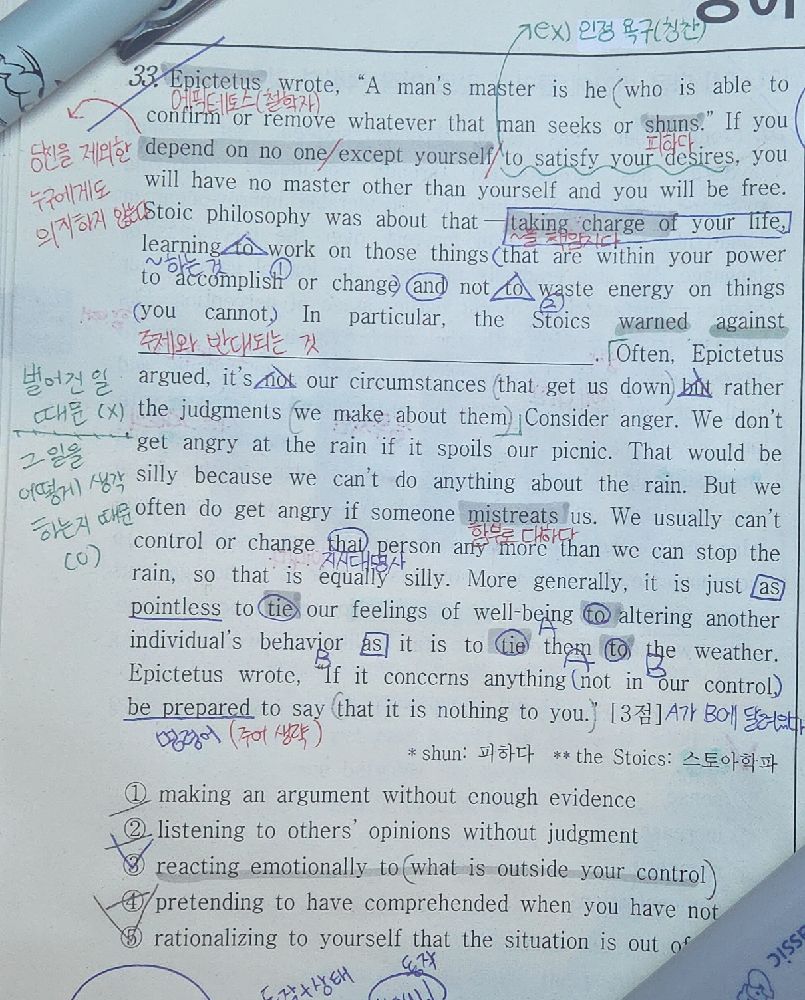 ex) 인정 욕구(칭찬)
33. Epictetus wrote, “A man's master is he (who is able to
에픽테토스(철학자)
confirm or remove whatever that man seeks or shuns.” If you
피하다
당신을 제외한
누구에게도
의지하지 않는다
depend on no one/except yourself/to satisfy your desires, you
will have no master other than yourself and you will be free.
Stoic philosophy was about that — taking charge of your life,
~을 책임지다
learning to work on those things (that are within your power
~하는 것 ①
to accomplish or change) and not to waste energy on things
②
(you cannot.) In particular, the Stoics warned against
주제와 반대되는 것
. Often, Epictetus
벌어진 일
때문 (X)
그 일을
어떻게 생각
하는지 때문
(O)
argued, it's not our circumstances (that get us down) but rather
the judgments (we make about them). Consider anger. We don't
get angry at the rain if it spoils our picnic. That would be
silly because we can't do anything about the rain. But we
often do get angry if someone mistreats us. We usually can't
함부로 대하다
control or change that person any more than we can stop the
지시대명사
rain, so that is equally silly. More generally, it is just as
pointless to tie our feelings of well-being to altering another
A
individual's behavior as it is to tie them to the weather.
B A B
Epictetus wrote, “If it concerns anything (not in our control,)
be prepared to say (that it is nothing to you.” [3점] A가 B에 달려있다
명령어 (주어 생략)
* shun: 피하다 ** the Stoics: 스토아학파
① making an argument without enough evidence
② listening to others' opinions without judgment
③ reacting emotionally to (what is outside your control)
④ pretending to have comprehended when you have not
⑤ rationalizing to yourself that the situation is out of
동작+상태
동작